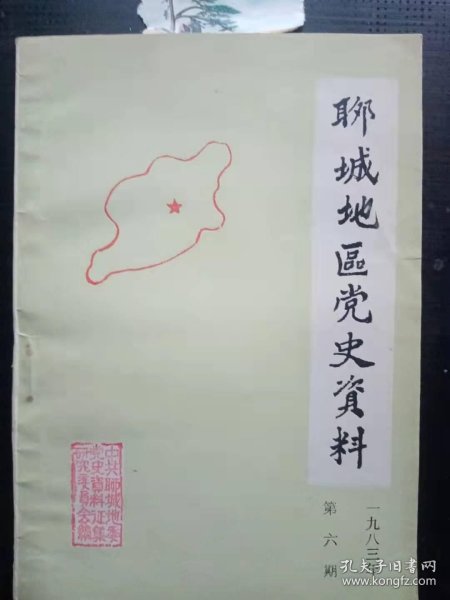 聊城地區党史資料
一九八三年
第六期
中共聊城地委
党史資料征集
研究委員会編
孔夫子旧书网